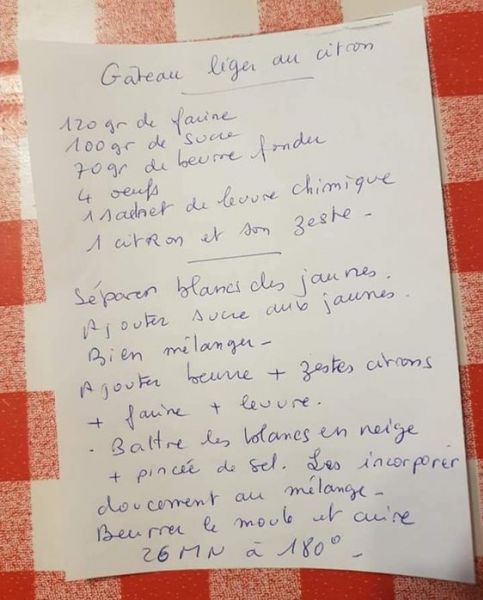 Gâteau léger au citron
120 gr de farine
100 gr de sucre
70 gr de beurre fondu
4 oeufs
1 sachet de levure chimique
1 citron et son zeste -
Séparer blancs des jaunes.
Ajouter sucre aux jaunes.
Bien mélanger -
Ajouter beurre + zestes citrons
+ farine + levure.
. Battre les blancs en neige
+ pincée de sel. Les incorporer
doucement au mélange -
Beurrer le moule et cuire
26 MN à 180° -